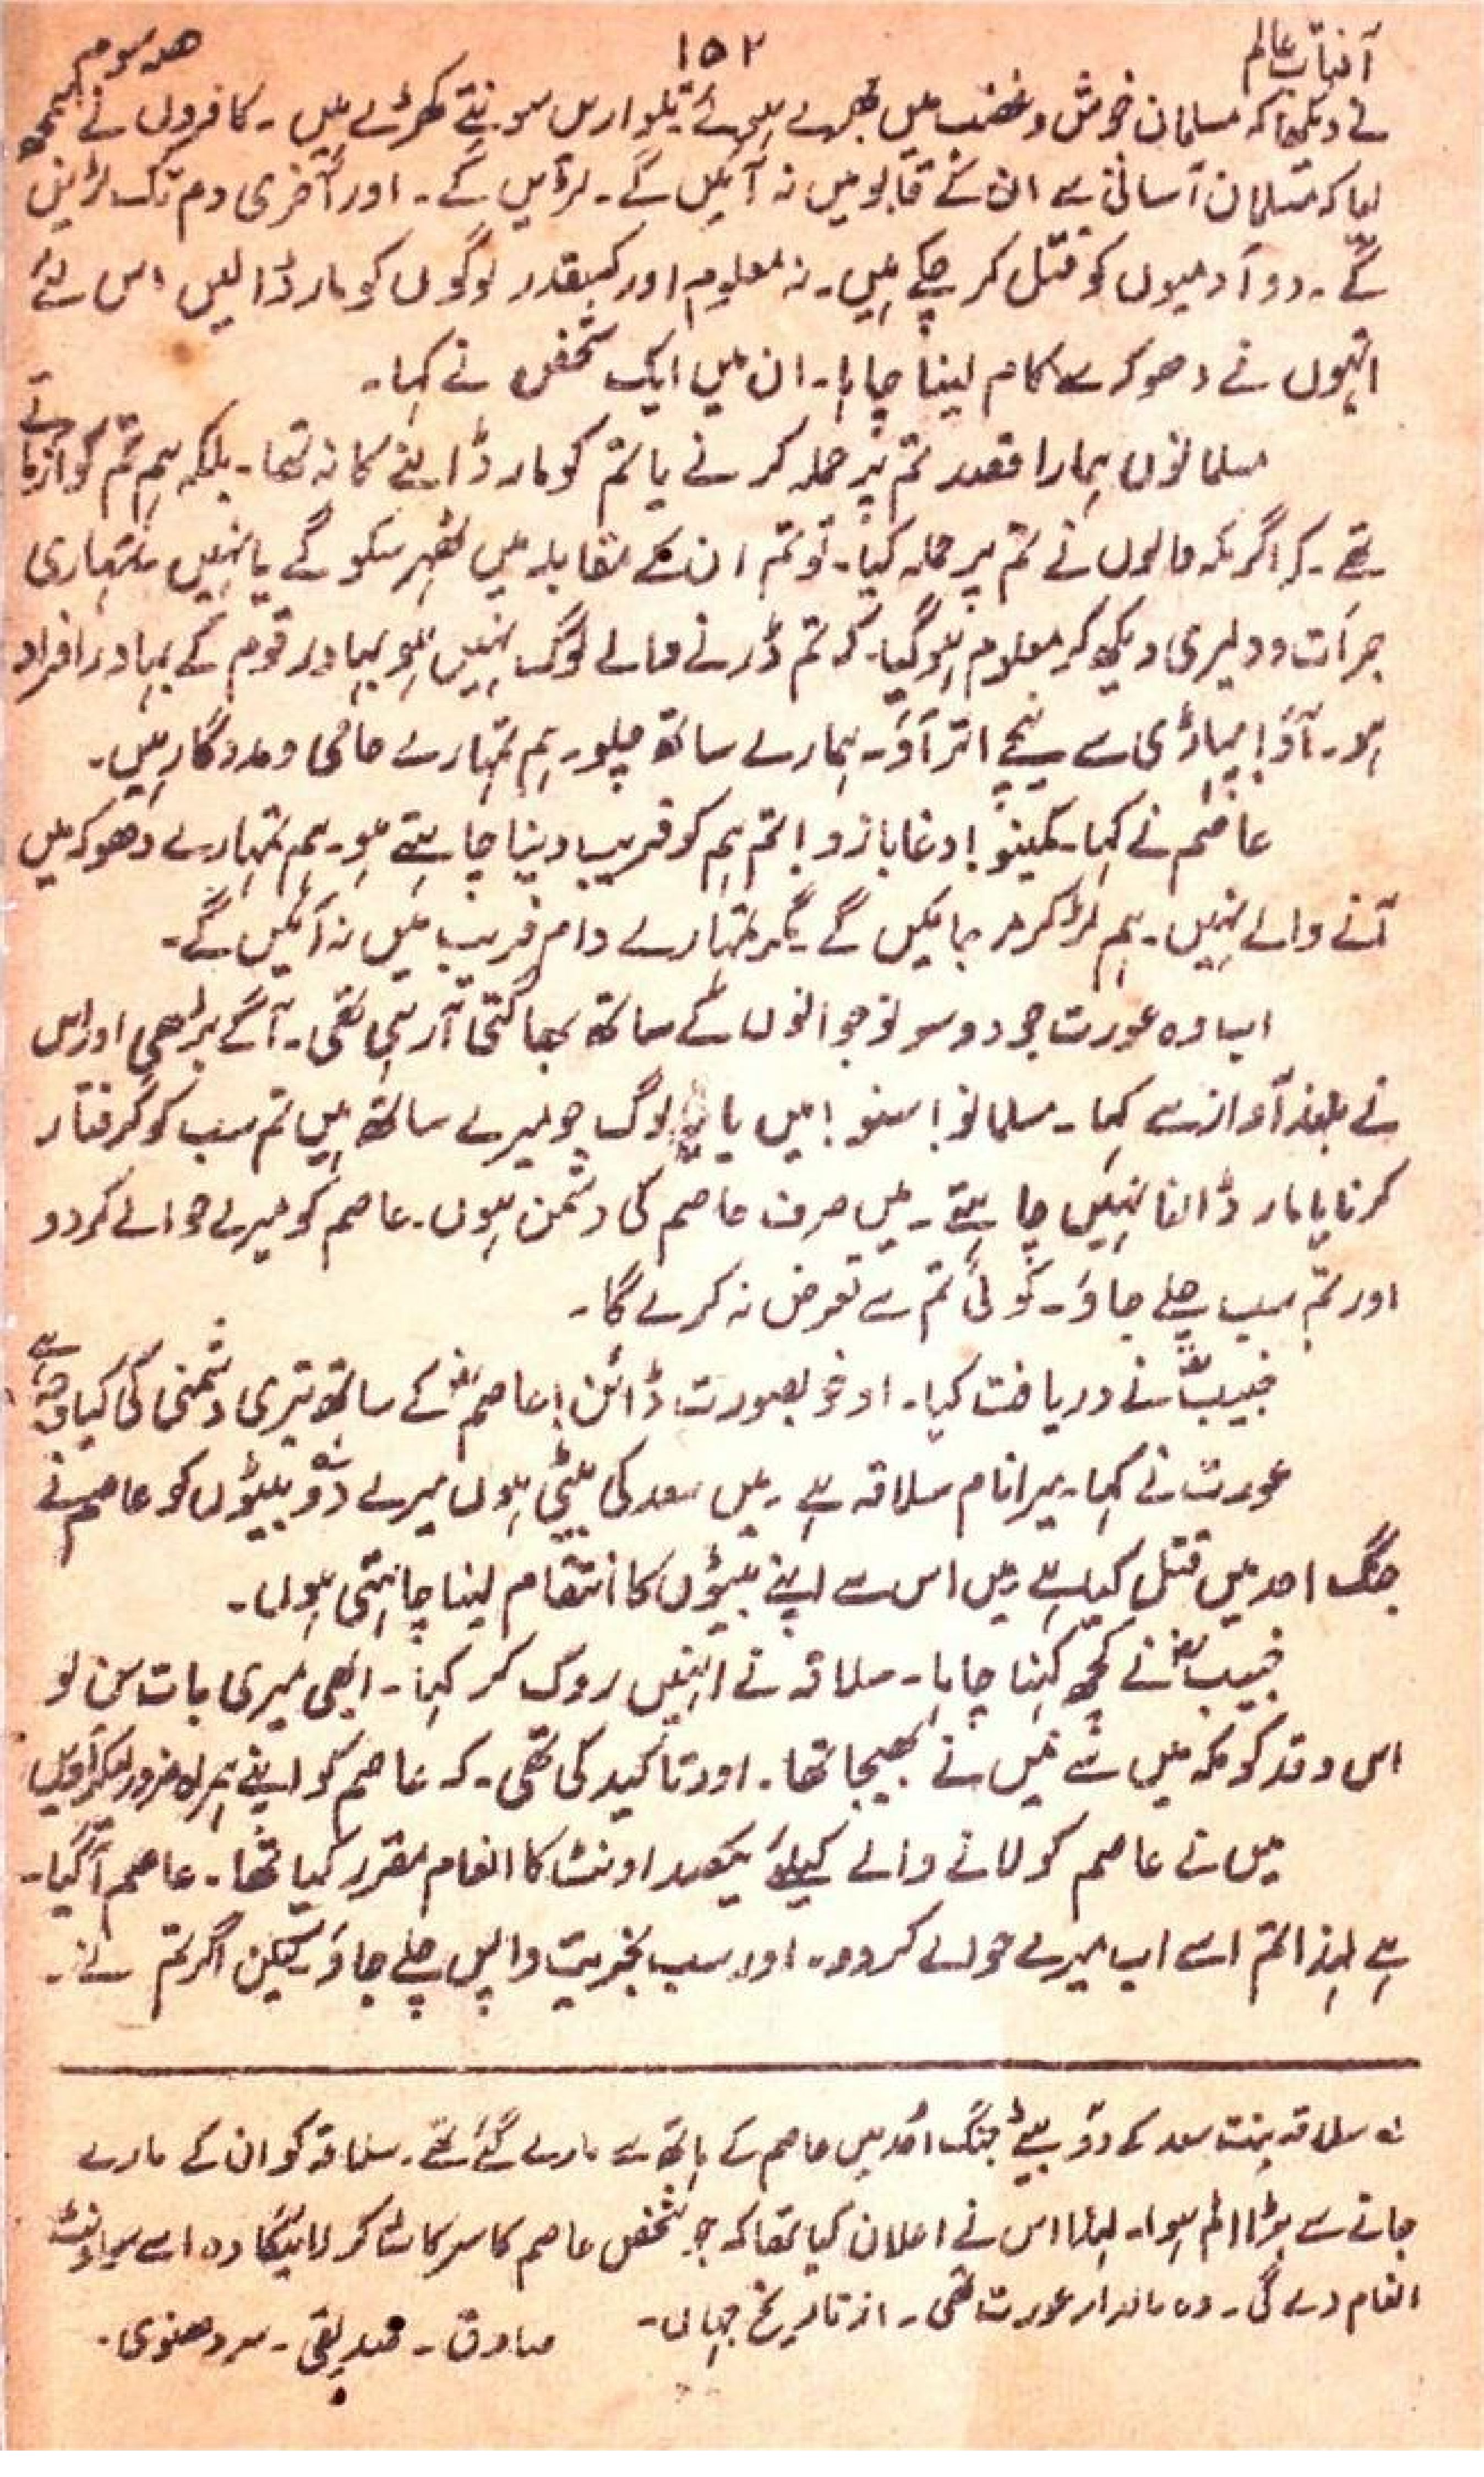 آفتاب عالم ۱۵۲ حصہ سوم
نے دیکھا کہ مسلمان جوش و غضب میں بھرے ہوئے تلواریں سونتے کھڑے ہیں۔ کافروں نے سمجھ
لیا کہ مسلمان آسانی سے ان کے قابو میں نہ آئیں گے۔ لڑیں گے۔ اور آخری دم تک لڑیں
گے۔ دو آدمیوں کو قتل کر چکے ہیں۔ نہ معلوم اور کسقدر لوگوں کو مار ڈالیں اس لئے
انہوں نے دھوکہ سے کام لینا چاہا۔ ان میں ایک شخص نے کہا۔
مسلمانوں ہمارا قصد تم پر حملہ کرنے یا تم کو مار ڈالنے کا نہ تھا۔ بلکہ ہم تم کو آزماتے
تھے۔ کہ اگر مکہ والوں نے تم پر حملہ کیا۔ تو تم ان کے مقابلہ میں ٹھہر سکو گے یا نہیں تمہاری
جرأت و دلیری دیکھ کر معلوم ہو گیا۔ کہ تم ڈرنے والے لوگ نہیں ہو بہادر قوم کے بہادر افراد
ہو۔ آؤ! پہاڑی سے نیچے اتر آؤ۔ ہمارے ساتھ چلو۔ ہم تمہارے حامی و مددگار ہیں۔
عاصم نے کہا۔ کمینو! دغابازو! تم ہم کو فریب دینا چاہتے ہو۔ ہم تمہارے دھوکہ میں
آنے والے نہیں۔ ہم لڑ کر مر جائیں گے۔ مگر تمہارے دام فریب میں نہ آئیں گے۔
اب وہ عورت جو دو سو نوجوانوں کے ساتھ بھاگتی آ رہی تھی۔ آگے بڑھی اور اس
نے بلند آواز سے کہا۔ مسلمانو! سنو! میں یا یہ لوگ جو میرے ساتھ ہیں تم سب کو گرفتار
کرنا یا مار ڈالنا نہیں چاہتے۔ میں صرف عاصم کی دشمن ہوں۔ عاصم کو میرے حوالے کر دو
اور تم سب چلے جاؤ۔ کوئی تم سے تعرض نہ کرے گا۔
خبیبؓ نے دریافت کیا۔ او خوبصورت ڈائن! عاصمؓ کے ساتھ تیری دشمنی کی کیا وجہ ہے
عورت نے کہا۔ میرا نام سلاقہ ہے۔ میں سعد کی بیٹی ہوں میرے دو بیٹوں کو عاصم نے
جنگ احد میں قتل کیا ہے میں اس سے اپنے بیٹوں کا انتقام لینا چاہتی ہوں۔
خبیبؓ نے کچھ کہنا چاہا۔ سلاقہ نے انہیں روک کر کہا۔ ابھی میری بات سن لو
اس وفد کو مکہ میں سے میں نے بھیجا تھا۔ اور تاکید کی تھی۔ کہ عاصم کو اپنے ہمراہ ضرور لیکر آویں
میں نے عاصم کو لانے والے کیلئے یکصد اونٹ کا انعام مقرر کیا تھا۔ عاصم آ گیا۔
ہے لہذا تم اسے اب میرے حوالے کر دو۔ اور سب بخیریت واپس چلے جاؤ۔ لیکن اگر تم نے۔
ـہ سلاقہ بنت سعد کے دو بیٹے جنگ اُحد میں عاصم کے ہاتھ سے مارے گئے تھے۔ سلاقہ کو ان کے مارے
جانے سے بڑا الم ہوا۔ لہذا اس نے اعلان کیا تھا کہ جو شخص عاصم کا سر کاٹ کر لائیگا وہ اسے سو اونٹ
انعام دے گی۔ وہ مالدار عورت تھی۔ از تاریخ جہاں۔ صادق۔ صدیقی۔ سردھنوی۔